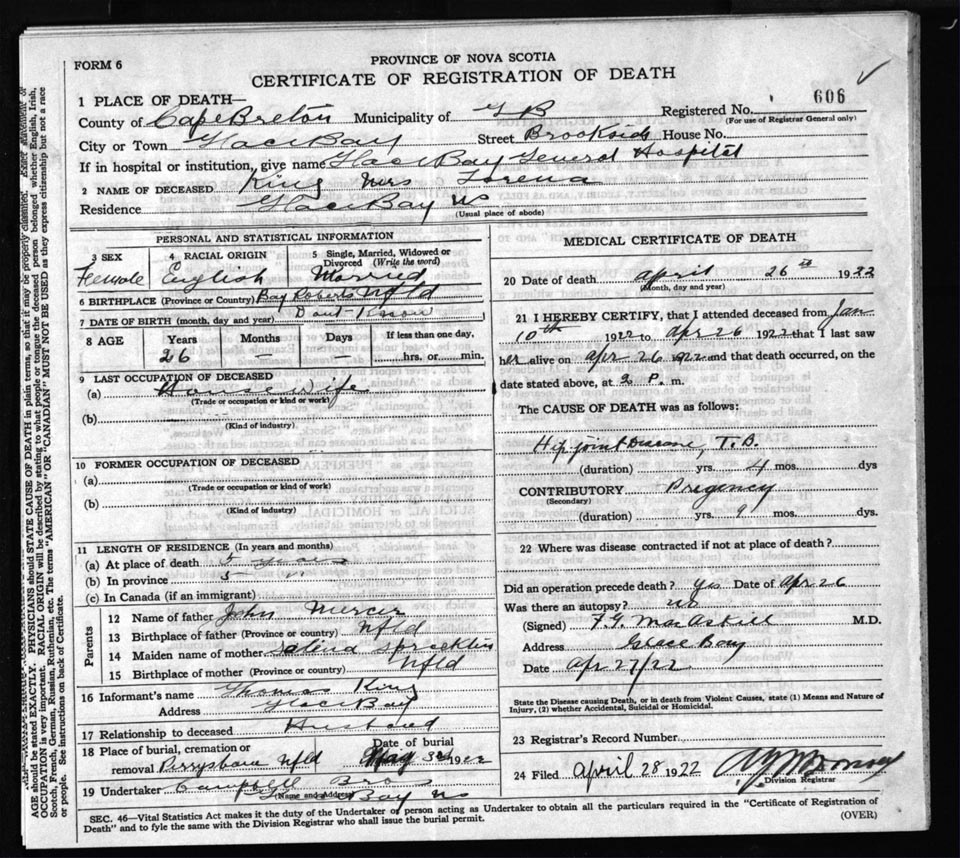 FORM 6
PROVINCE OF NOVA SCOTIA
CERTIFICATE OF REGISTRATION OF DEATH
606
1 PLACE OF DEATH—
County of Cape Breton Municipality of G B Registered No.
(For use of Registrar General only)
City or Town Glace Bay Street Brookside House No.
If in hospital or institution, give name Glace Bay General Hospital
2 NAME OF DECEASED King Mrs Lorena
Residence Glace Bay NS
(Usual place of abode)
PERSONAL AND STATISTICAL INFORMATION
3 SEX Female
4 RACIAL ORIGIN English
5 Single, Married, Widowed or Divorced (Write the word) Married
6 BIRTHPLACE (Province or Country) Bay Roberts Nfld
7 DATE OF BIRTH (month, day and year) Dont Know
8 AGE Years 26 Months – Days – If less than one day, hrs. or min.
9 LAST OCCUPATION OF DECEASED
(a) House Wife
(Trade or occupation or kind or work)
(b)
(Kind of industry)
10 FORMER OCCUPATION OF DECEASED
(a)
(Trade or occupation or kind of work)
(b)
(Kind of industry)
11 LENGTH OF RESIDENCE (In years and months)
(a) At place of death 5 years
(b) In province 5 "
(c) In Canada (if an immigrant)
Parents
12 Name of father John Mercer
13 Birthplace of father (Province or country) Nfld
14 Maiden name of mother
15 Birthplace of mother (Province or country) Nfld
16 Informant's name Thomas King
Address Glace Bay
17 Relationship to deceased Husband
18 Place of burial, cremation or removal Nfld Date of burial May 3rd 1922
19 Undertaker Campbell Bros
(Name and Address) Glace Bay NS
MEDICAL CERTIFICATE OF DEATH
20 Date of death April 26th 1922
(Month, day and year)
21 I HEREBY CERTIFY, that I attended deceased from Jan
10th 1922 to Apr 26 1922 that I last saw
her alive on Apr 26 1922 and that death occurred, on the
date stated above, at 2 P. m.
The CAUSE OF DEATH was as follows:
Hip joint Disease, T.B.
(duration) yrs. 4 mos. dys
CONTRIBUTORY Pregency
(Secondary)
(duration) yrs. 9 mos. dys.
22 Where was disease contracted if not at place of death?
Did an operation precede death? Yes Date of Apr 26
Was there an autopsy? no
(Signed) F.G. MacAskill M.D.
Address Glace Bay
Date Apr 27/22
State the Disease causing Death, or in death from Violent Causes, state (1) Means and Nature of
Injury, (2) whether Accidental, Suicidal or Homicidal.
23 Registrar's Record Number
24 Filed April 28 1922
Division Registrar
SEC. 46—Vital Statistics Act makes it the duty of the Undertaker or person acting as Undertaker to obtain all the particulars required in the "Certificate of Registration of
Death" and to fyle the same with the Division Registrar who shall issue the burial permit.
(OVER)
AGE should be stated EXACTLY. PHYSICIANS should STATE CAUSE OF DEATH in plain terms, so that it may be properly classified. Exact statement of
OCCUPATION is very important. RACIAL ORIGIN will be described by stating to what people or tongue the deceased person belonged whether English, Irish,
Scotch, French, German, Russian, Ruthenian, etc. The terms "AMERICAN" OR "CANADIAN" MUST NOT BE USED as they express citizenship but not a race
or people. See instructions on back of Certificate.